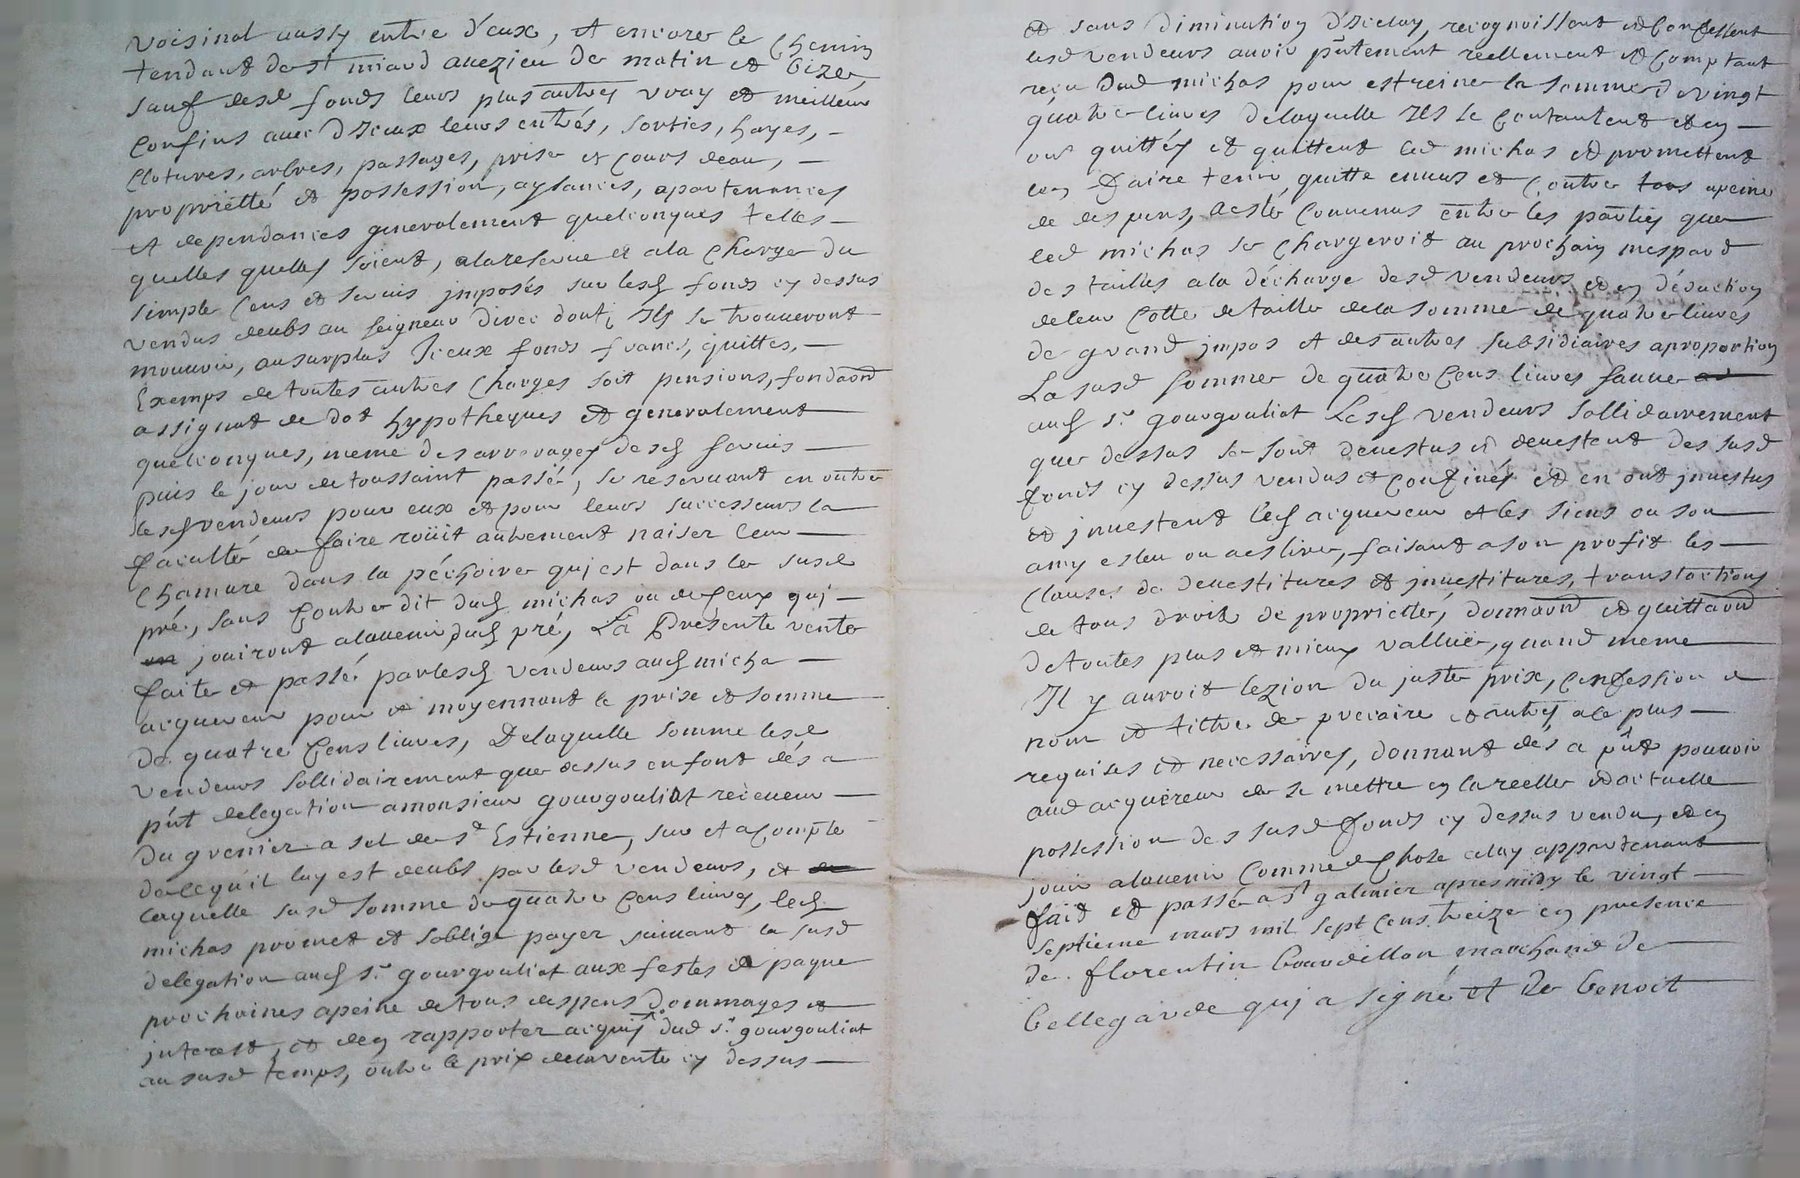 voisinal aussy entre d'eux, et encores le chemin
tendant de st miard a vezieu de matin et bize,
sauf desd fonds leurs plus autres vray et meilleur
confins avec d'Iceux leurs entrés, sorties, hayes, —
clotures, arbres, passages, prise et cours deau, —
propriètté et possession, aysances, apartenances
et dependances generalement quelconques telles —
quelles quelles soient, alareserve et ala charge du
simple cens et servis jmposés sur lesd fonds cy dessus
vendus deubs au seigneur direc dont, Ils se trouveront
mouvoir, ausurplus Iceux fonds francs, quittes, —
Exemps de toutes autres charges soit pensions, fondaõn
assignat de dot hypotheques et generalement
quelconques, meme des arrerages desd servis —
puis le jour de toussaint passé, se reservant en outre
lesd vendeurs pour eux et pour leurs successeurs la
faculté de faire roüit autrement naiser leur —
chamure dans la pêchoire qui est dans le susd
pré, sans contre dit dud michas ou de ceux qui —
jouiront alavenir dud pré, La Présente vente
faite et passée par lesd vendeurs aud micha —
acquereur pour et moyennant le prix et somme
de quatre cens livres, Delaquelle somme lesd
vendeurs sollidairement que dessus en font dés a
pñt delegation amonsieur gourgouliat receveur —
du grenier a sel de st Estienne, sur et acompte
dece qu'il luy est deubs par lesd vendeurs, et
laquelle susd somme de quatre cens livres, led
michas promet et soblige payer suivant la susd
delegation aud sr gourgouliat aux festes de paque
prochaines apeine de tous despens dommages et
interest, et den rapporter acquis dud sr gourgouliat
au susd temps, outre le prix delavente cy dessus —
et sans diminution d'Iceluy, recognoissent et confessent
lesd vendeurs avoir pñtement réellement et comptant
reçu dud michas pour estreine la somme de vingt
quatre livres delaquelle Ils se contantent et en —
ont quittés et quittent led michas et promettent
len faire tenir quitte envers et contre tous apeine
de despens, a esté convenus entre les parties que
led michas se chargeroit au prochain mespard
des tailles ala décharge desd vendeurs et en déduction
deleur cotte de taille dela somme de quatre livres
de grand jmpos et des autres subsidiaires aproportion
La susd somme de quatre cens livres sauve
aud sr gourgouliat Lesd vendeurs sollidairement
que dessus se sont devestus et devestent des susd
fonds cy dessus vendus et confinés et en ont jnvestus
et jnvestent led acquereur et les siens ou son
amy esleu ou aeslire, faisant a son profit les —
clauses de devestitures et jnvestitures, translactions
de tous droits de proprietté, donnaõn et quittaõn
detoutes plus et mieux vallüe, quand meme
Il y auroit lezion du juste prix, confession et
nom et tiltre de precaire et autres ale plus —
requises et necessaires, donnant dés a pñt pouvoir
aud acquéreur de se mettre en la reelle et actuelle
possession des susd fonds cy dessus vendu, et en
jouir alavenir comme de chose aluy appartenant
fait et passé a st galmier apres midy le vingt —
septieme mars mil sept cens treize en presence
de florentin bourdillon marchand de
bellegarde qui a signé et de benoit